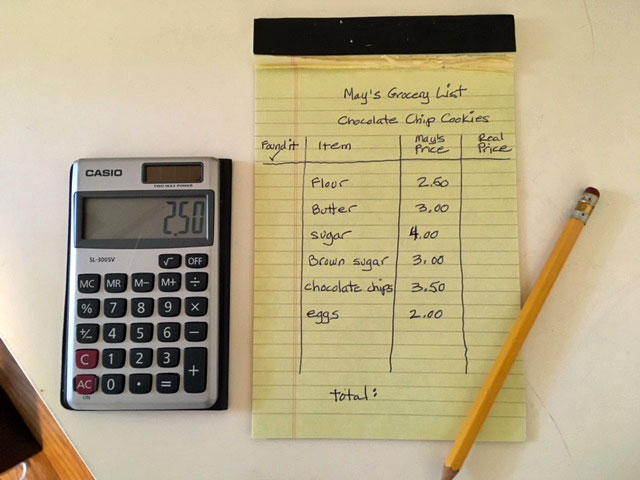 May's Grocery List
Chocolate Chip Cookies
Found it ✓ Item May's Price Real Price
Flour 2.50
Butter 3.00
sugar 4.00
Brown sugar 3.00
chocolate chips 3.50
eggs 2.00
Total:
CASIO
TWO WAY POWER
2.50
SL-300SV
√ OFF
MC MR M− M+ ÷
% 7 8 9 ×
+/− 4 5 6 −
C 1 2 3 +
AC 0 · =
ON